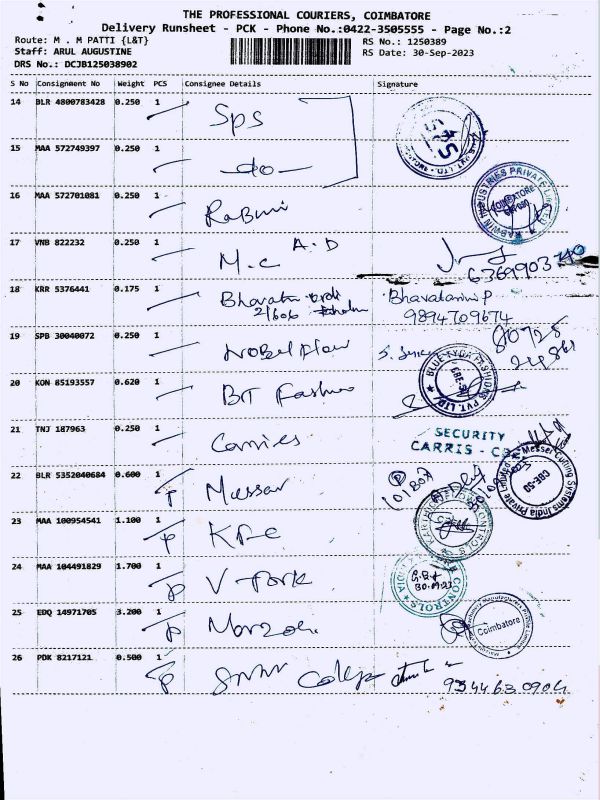 THE PROFESSIONAL COURIERS, COIMBATORE
Delivery Runsheet - PCK - Phone No.:0422-3505555 - Page No.:2
Route: M . M PATTI {L&T}
RS No.: 1250389
Staff: ARUL AUGUSTINE
RS Date: 30-Sep-2023
DRS No.: DCJB125038902
S No Consignment No Weight PCS Consignee Details Signature
14 BLR 4800783428 0.250 1 Sps
15 MAA 572749397 0.250 1 -do-
16 MAA 572701081 0.250 1
RABWIN INDUSTRIES PRIVATE LIMITED
COIMBATORE
17 VNB 822232 0.250 1 M.C A.D
6369903740
18 KRR 5376441 0.175 1 Bharath
2/606
Bhavatarini P
9894709674
19 SPB 30040072 0.250 1 Nobel flow
80725
20 KON 85193557 0.620 1 BT Fashion
BLUE TYGA FASHIONS PVT. LTD.
21 TNJ 187963 0.250 1 Carries
SECURITY
CARRIS - CB
22 BLR 5352040684 0.600 1 Messer
Messer Cutting Systems India Private Limited
CBE-50
23 MAA 100954541 1.100 1
CONTROLS
24 MAA 104491829 1.700 1 V Tork
CONTROLS INDIA
30.09.23
25 EDQ 14971705 3.200 1
Coimbatore
26 PDK 8217121 0.500 1
9344630904